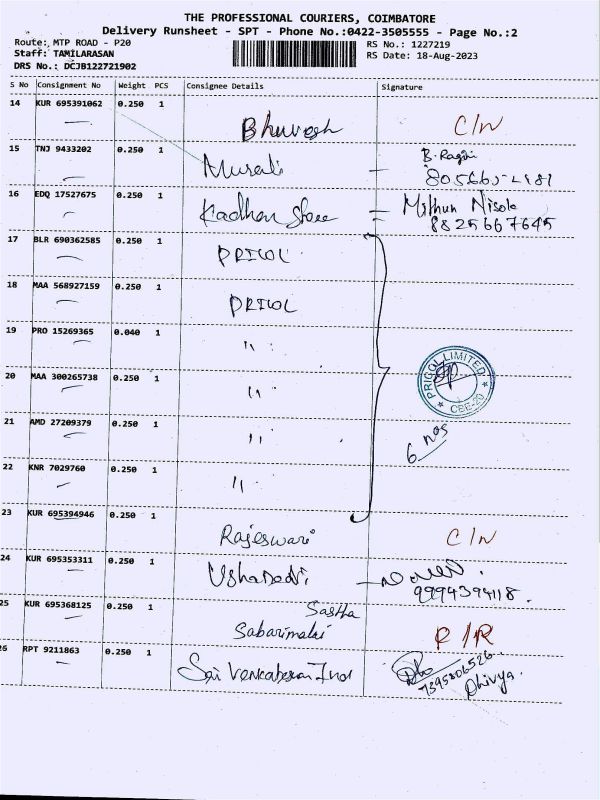 THE PROFESSIONAL COURIERS, COIMBATORE
Delivery Runsheet - SPT - Phone No.:0422-3505555 - Page No.:2
Route: MTP ROAD - P20
RS No.: 1227219
Staff: TAMILARASAN
RS Date: 18-Aug-2023
DRS No.: DCJB122721902
S No Consignment No Weight PCS Consignee Details Signature
14 KUR 695391062 0.250 1 Bhuvesh C/N
15 TNJ 9433202 0.250 1 Murali B. Ragini
16 EDQ 17527675 0.250 1 Kadhan Stree = Mithun Nisole
8825667645
17 BLR 690362585 0.250 1 PRICOL
18 MAA 568927159 0.250 1 PRICOL
19 PRO 15269365 0.040 1 "
20 MAA 300265738 0.250 1 "
PRICOL LIMITED
CBE-20
21 AMD 27209379 0.250 1 "
6 nos
22 KNR 7029760 0.250 1 "
23 KUR 695394946 0.250 1 Rajeswari C/N
24 KUR 695353311 0.250 1 UshaDevi
9994394118.
25 KUR 695368125 0.250 1 Sastha
Sabarimalai R/R
26 RPT 9211863 0.250 1 Sri Venkatesan Ind
7395806526
Dhivya.